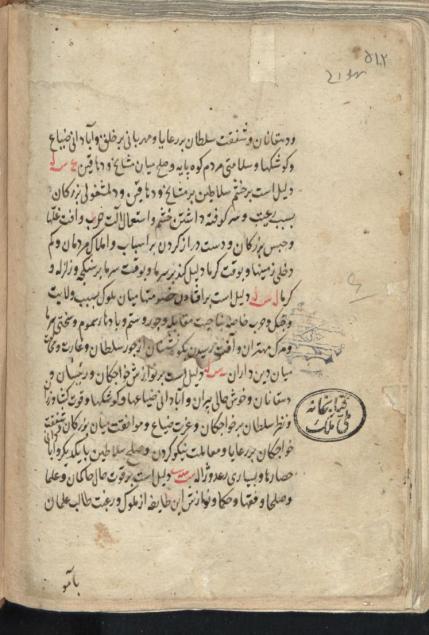 ۵۱۲
و دهقانان و شفقت سلطان بر رعایا و مهربانی بر خلق و آبادانی ضیاع
و کوشکها و سلامتی مردم کوه پایه و صلح میان مشایخ و دهاقین
دلیل است بر خشم سلاطین بر مشایخ و دهاقین و دلمشغولی بزرگان
بسبب رعیت و سر کوفته داشتن خشم و استعمال آلت حرب و آفت غلها
و حبس بزرگان و دست دراز کردن بر اسباب و املاک مردمان و کم
دخلی زمینها و بوقت گرما دلیل کند بر سرما و بوقت سرما بر سنگچه و زلزله و
گرما دلیل است بر افتادن خصومتها میان ملوک بسبب ولایت
و جنگ و حرب خاصه بناحیت مقابله و جور و ستم و بادها سموم و سختی سرما
و مرگ مهتران و آفت رسیدن بکوشکشان از جور سلطان و غارت و
میان دین داران دلیل است بر نوازش خواجگان و رئیسان و
دستانان و خوش حالی پیران و آبادانی ضیاعها و کوشکها و قوت کشاورزان
و نظر سلطان بر خواجگان و عزت ضیاع و موافقت میان بزرگان و شفقت
خواجگان بر رعایا و معاملت نیکو کردن و صلح سلاطین با یکدیگر و آبادانی
حصارها و بسیاری رعد و ژاله دلیل است بر قوت حال حاکمان و علما
و صلحا و فقها و حکما و نوازش این طایفه از ملوک و رغبت طالب علمان
بامو
کتابخانه
ملی ملک